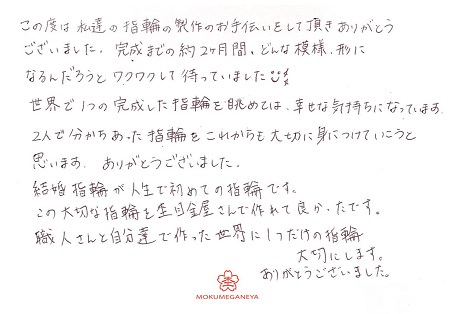 この度は私達の指輪の製作のお手伝いをして頂きありがとう
ございました。完成までの約2ヶ月間、どんな模様、形に
なるんだろうとワクワクして待っていました
世界で1つの完成した指輪を眺めては、幸せな気持ちになっています。
2人で分かちあった指輪をこれからも大切に身につけていこうと
思います。ありがとうございました。
結婚指輪が人生で初めての指輪です。
この大切な指輪を杢目金屋さんで作れて良かったです。
職人さんと自分達で作った世界に1つだけの指輪
大切にします。
ありがとうございました。
MOKUMEGANEYA